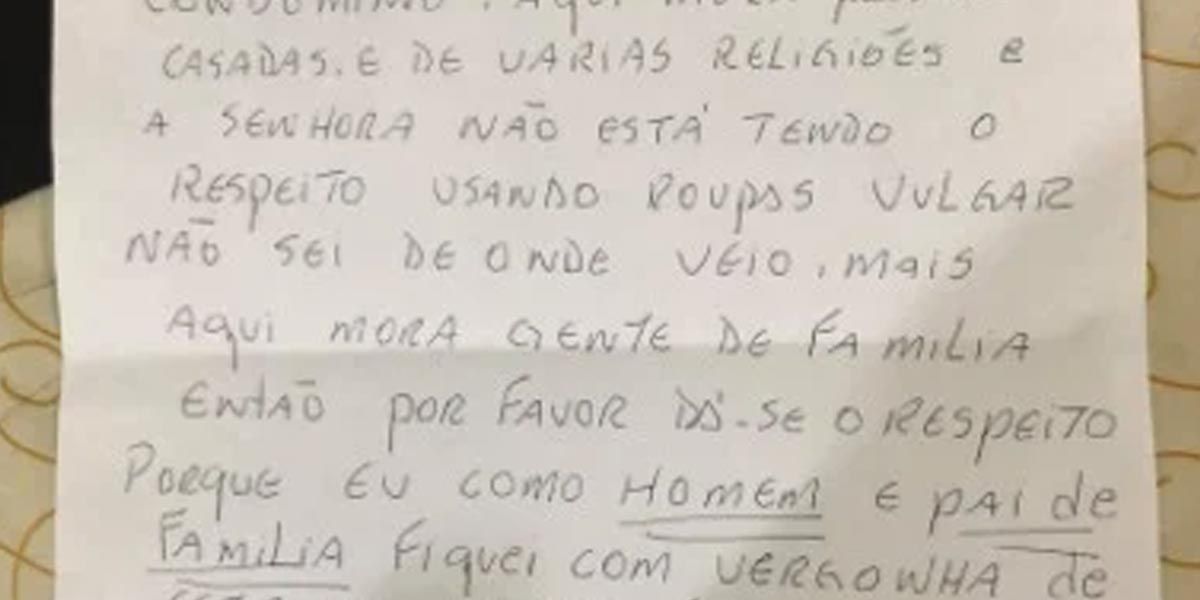 CONDOMINIO. Aqui MORA
CASADAS. E DE VARIAS RELIGIÕES e
A SENHORA NÃO ESTÁ TENDO O
RESPEITO USANDO ROUPAS VULGAR
NÃO SEI DE ONDE VEIO, MAIS
AQUI MORA GENTE DE FAMILIA
ENTÃO POR FAVOR DÁ-SE O RESPEITO
PORQUE EU COMO HOMEM E PAI de
FAMILIA FIQUEI COM VERGONHA de